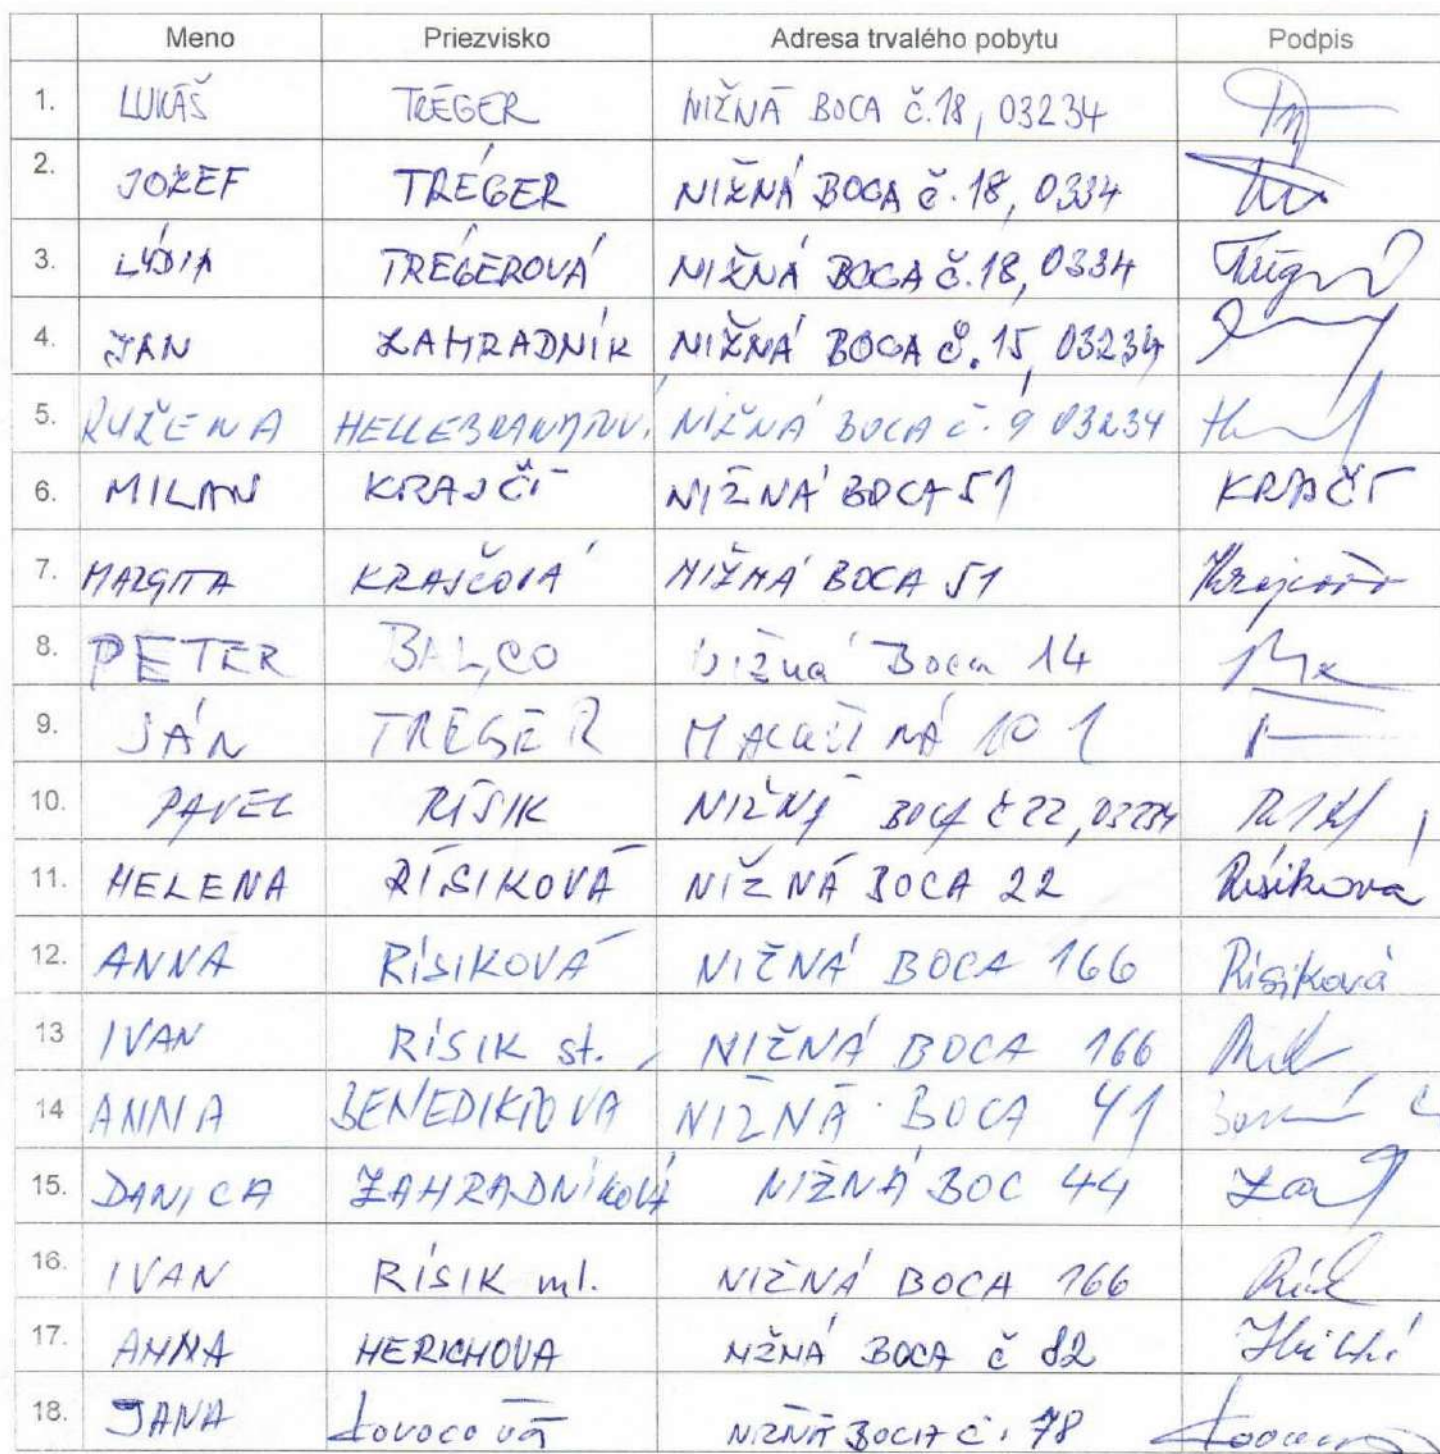 Meno Priezvisko Adresa trvalého pobytu Podpis
1. LUKÁŠ TRÉGER NIŽNÁ BOCA č.18, 03234
2. JOZEF TRÉGER NIŽNÁ BOCA č.18, 0334
3. LÝDIA TRÉGEROVÁ NIŽNÁ BOCA č.18, 0334
4. JÁN ZAHRADNÍK NIŽNÁ BOCA č.15, 03234
5. RUŽENA NIŽNÁ BOCA č.9 03234
6. MILAN KRAJČÍ NIŽNÁ BOCA 51
7. MARGITA KRAJČOVÁ NIŽNÁ BOCA 51
8. PETER BALCO Nižná Boca 14
9. JÁN TRÉGER 101
10. PAVEL RÍSIK NIŽNÁ BOCA č 22, 03234
11. HELENA RÍSIKOVÁ NIŽNÁ BOCA 22 Rísiková
12. ANNA RÍSIKOVÁ NIŽNÁ BOCA 166 Rísiková
13 IVAN RÍSIK st. NIŽNÁ BOCA 166
14 ANNA BENEDIKTOVA NIŽNÁ BOCA 41
15. DANICA ZAHRADNÍKOVÁ NIŽNÁ BOC 44
16. IVAN RÍSIK ml. NIŽNÁ BOCA 166
17. ANNA HERICHOVA NŽNÁ BOCA č 82
18. JANA NIŽNÁ BOCA č. 78